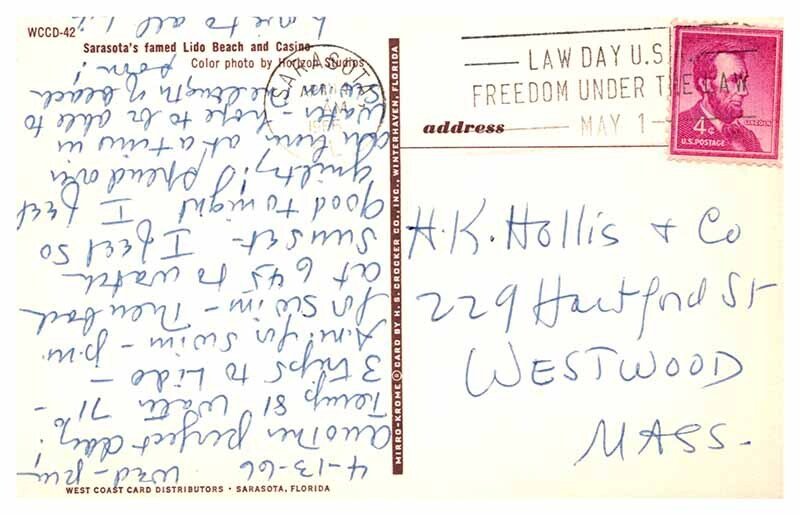 WCCD-42
Sarasota's famed Lido Beach and Casino
Color photo by Horizon Studios
SARASOTA
AM
LAW DAY U.S.A.
FREEDOM UNDER THE LAW
MAY 1
4¢
LINCOLN
U.S. POSTAGE
address
H.K. Hollis + Co
229 Hartford St
WESTWOOD
MASS.
MIRRO-KROME ® CARD BY H. S. CROCKER CO., INC., WINTERHAVEN, FLORIDA
4-13-66 Wed-pm
Another perfect day!
Temp 81 Water 71° -
3 trips to Lido -
A.M. for swim - p.m.
for swim - then back
at 645 to watch
sunset - I feel so
good tonight I feel
guilty! Spend over
an hour at a time in
water - hope to be able to
the length of beach
soon!
Love to all
WEST COAST CARD DISTRIBUTORS • SARASOTA, FLORIDA